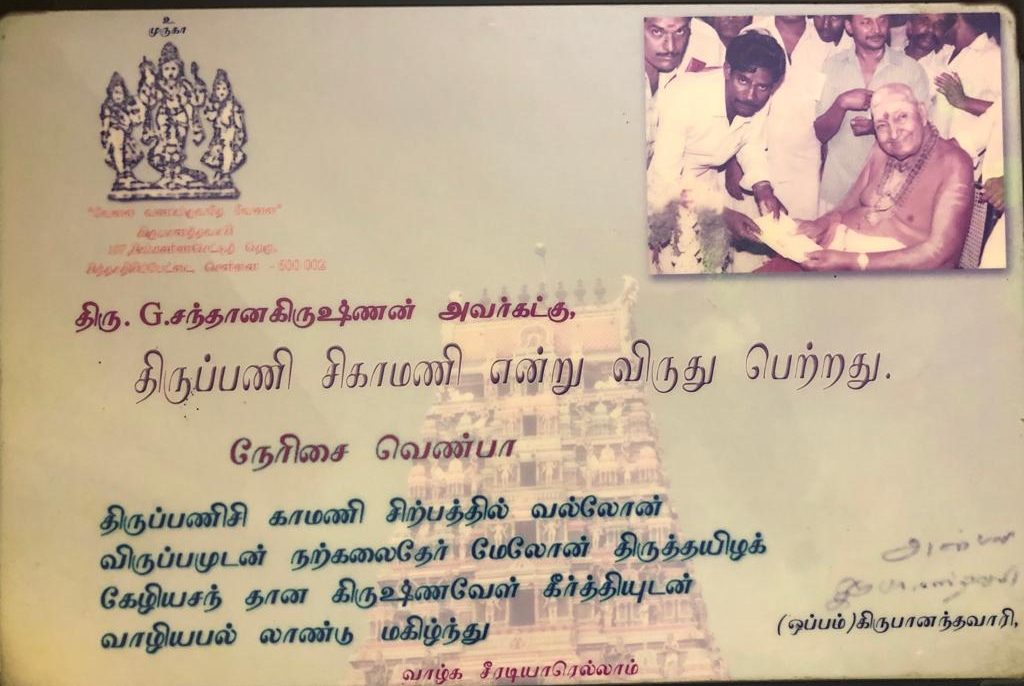 உ
முருகா
"வேலை வணங்குவதே வேலை"
கிருபானந்தவாரி
சிந்தாதிரிப்பேட்டை சென்னை - 600 002
திரு. G.சந்தானகிருஷ்ணன் அவர்கட்கு,
திருப்பணி சிகாமணி என்று விருது பெற்றது.
நேரிசை வெண்பா
திருப்பணிசி காமணி சிற்பத்தில் வல்லோன்
விருப்பமுடன் நற்கலைதேர் மேலோன் திருத்தயிழக்
கேழியசந் தான கிருஷ்ணவேள் கீர்த்தியுடன்
வாழியபல் லாண்டு மகிழ்ந்து
அன்பன்
(ஒப்பம்)கிருபானந்தவாரி,
வாழ்க சீரடியாரெல்லாம்